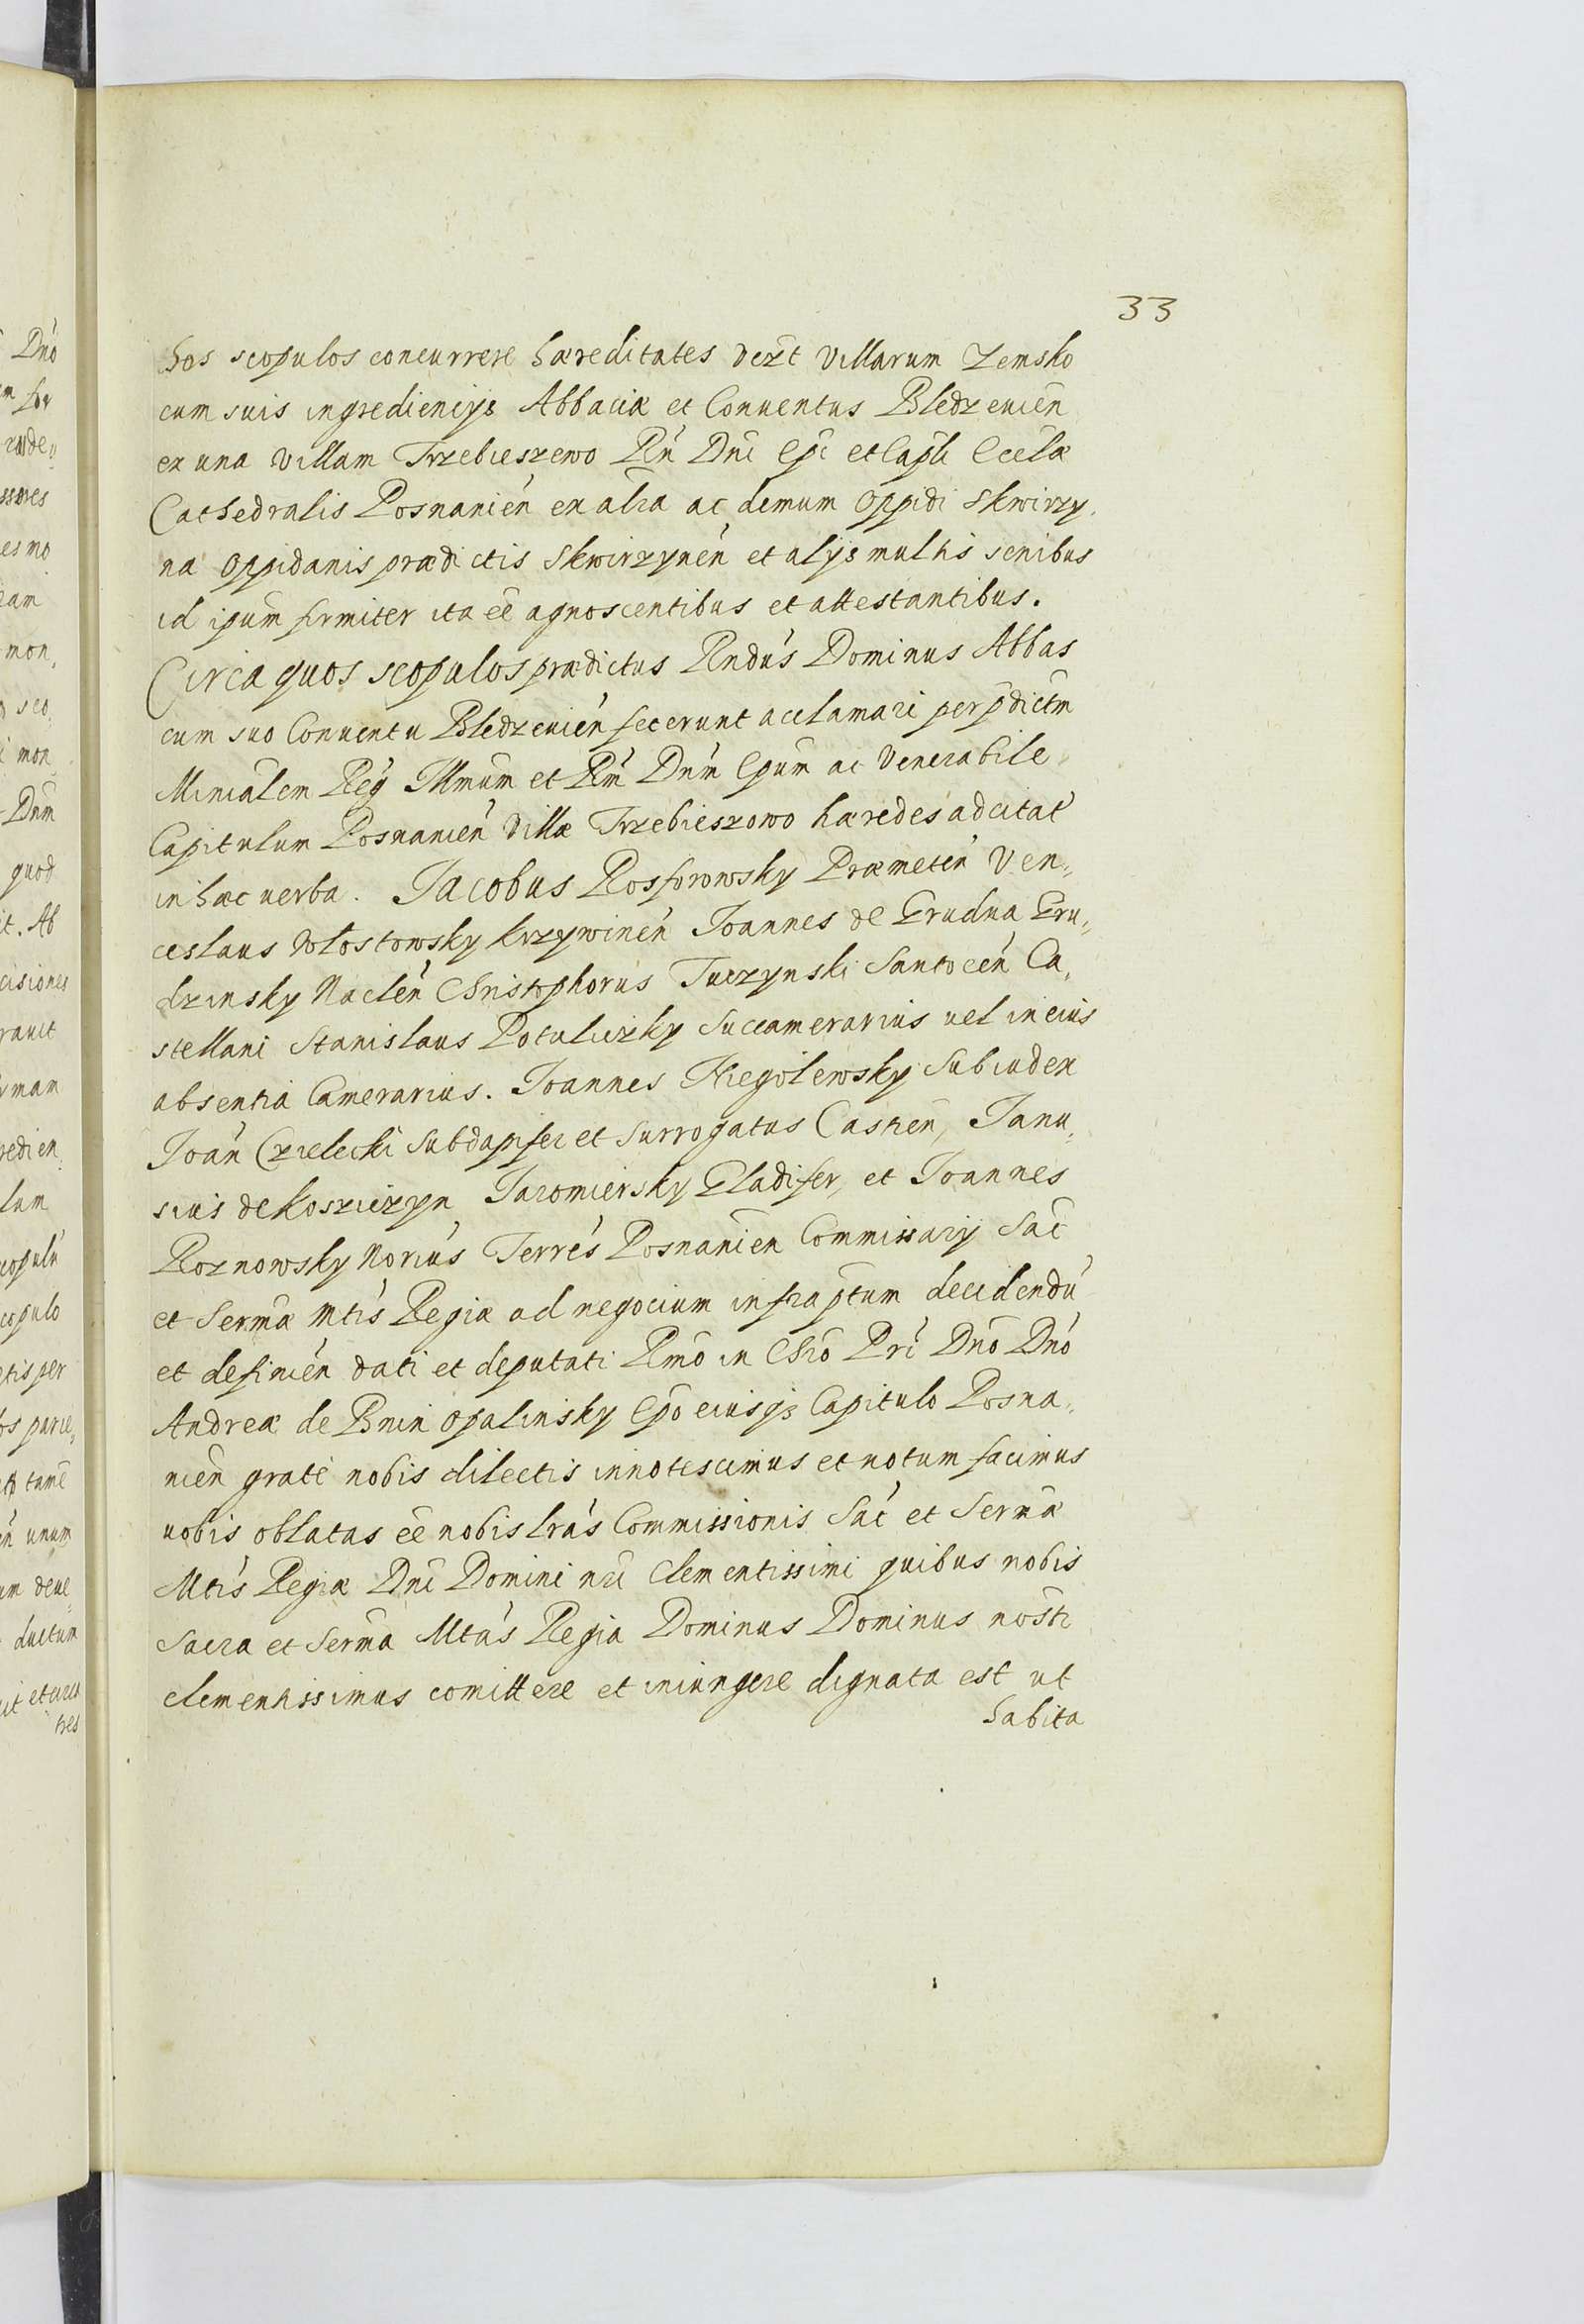 33
hos scopulos concurrere hæreditates vczt Villarum Zemsko
cum suis ingrediencijs Abbaciæ et Conuentus Bledzeuień
ex una Villam Trzebieszewo Rń Dńi Epi et Capli Eccłæ
Cathedralis Posnanień ex altra ac demum Oppidi Skwirzy,
na Oppidanis prædictis Skwirzyneń et alijs multis senibus
id ipsum firmiter ita eē agnoscentibus et attestantibus.
Circa quos scopulos prædictus Rndús Dominus Abbas
cum suo Conuentu Bledzeuień fecerunt acclamari per pdictm
Minialem Reg Illmum et Rm Dnm Epum ac Venerabile
Capitulum Posnanień Villæ Trzebieszowo hæredes adcitat
in hæc uerba. Jacobus Rosporowsky Præmeteń Ven„
ceslaus Włostowsky Krzywineń Joannes de Grudna Gru„
dzinsky Nacleń Christophorus Tuczynski Santoceń Ca,
stellani Stanislaus Potuliczky Succamerarius uel in eius
absentia Camerarius. Joannes Niegolewsky Subiudex
Joań Czielecki Subdapifer et Surrogatus Castreń, Janu,
sius de Kosziczyn Jaromiersky Gladifer, et Joannes
Roznowsky Norius Terrés Posnanień Commissarij Sac
et Serma Mtis Regiæ ad negocium infraptum decidendu
et definień dati et deputati Rmo in Chro Pri Dno Dno
Andreæ de Bnin Opalinsky Epo eiusqs Capitulo Posna,
nień grate nobis dilectis innotescimus et notum facimus
uobis oblatas eē nobis lras Commissionis Sac et Serma
Mtis Regiæ Dni Domini nri Clementissimi quibus nobis
Sacra et Serma Mtas Regia Dominus Dominus nostr
clementissimus comittere et iniungere dignata est ut
habita